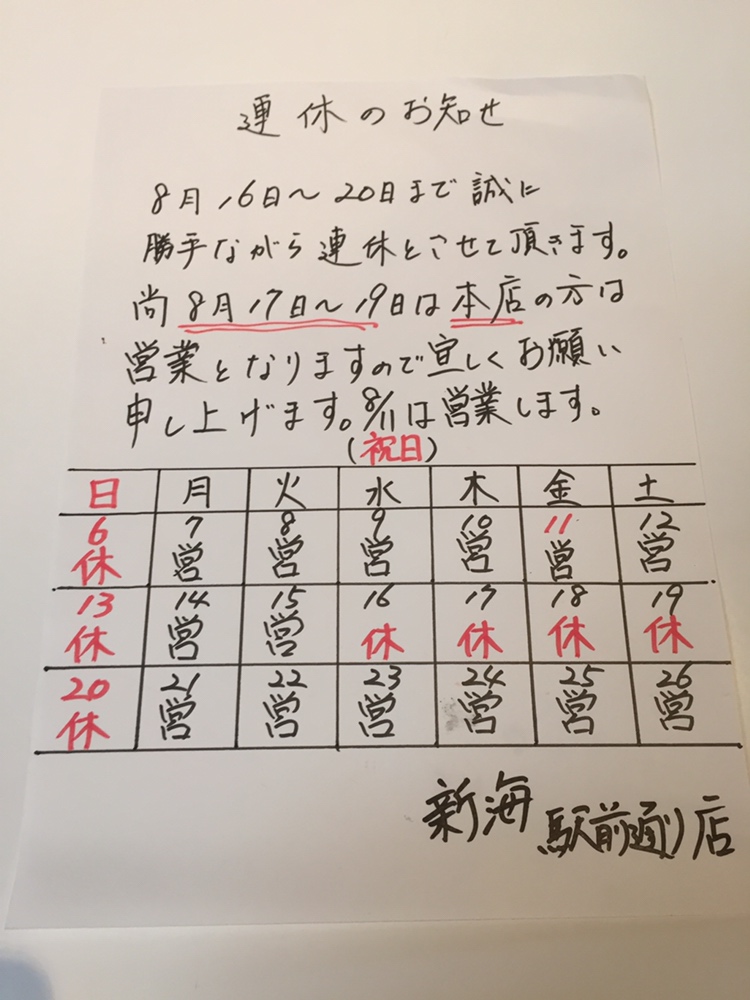 連休のお知せ
8月16日〜20日まで誠に
勝手ながら連休とさせて頂きます。
尚8月17日〜19日は本店の方は
営業となりますので宜しくお願い
申し上げます。8/11は営業します。
(祝日)
日 月 火 水 木 金 土
6 7 8 9 10 11 12
休 営 営 営 営 営 営
13 14 15 16 17 18 19
休 営 営 休 休 休 休
20 21 22 23 24 25 26
休 営 営 営 営 営 営
新海 駅前通り店